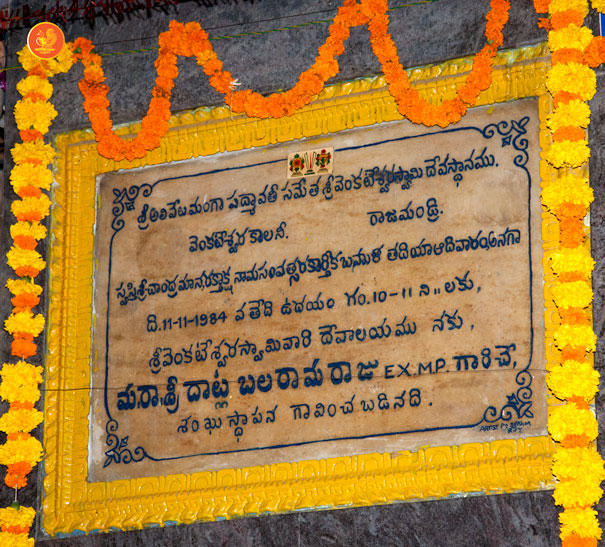 శ్రీ అలివేటమంగా పద్మావతీ సమేత శ్రీ వెంకటేశ్వరస్వామి దేవస్థానము.
వెంకటేశ్వర కాలనీ. రాజమండ్రి.
స్వస్తిశ్రీ చాంద్రమాన రక్తాక్షి నామ సంవత్సర కార్తీక బహుళ తదియా ఆదివారం అనగా
ది. 11-11-1984 వ తేదీ ఉదయం గం. 10-11 ని॥లకు,
శ్రీ వెంకటేశ్వరస్వామివారి దేవాలయము నకు,
మ.రా.శ్రీ దాట్ల బలరామరాజు EX.M.P. గారిచే,
శంఖుస్థాపన గావించబడినది.